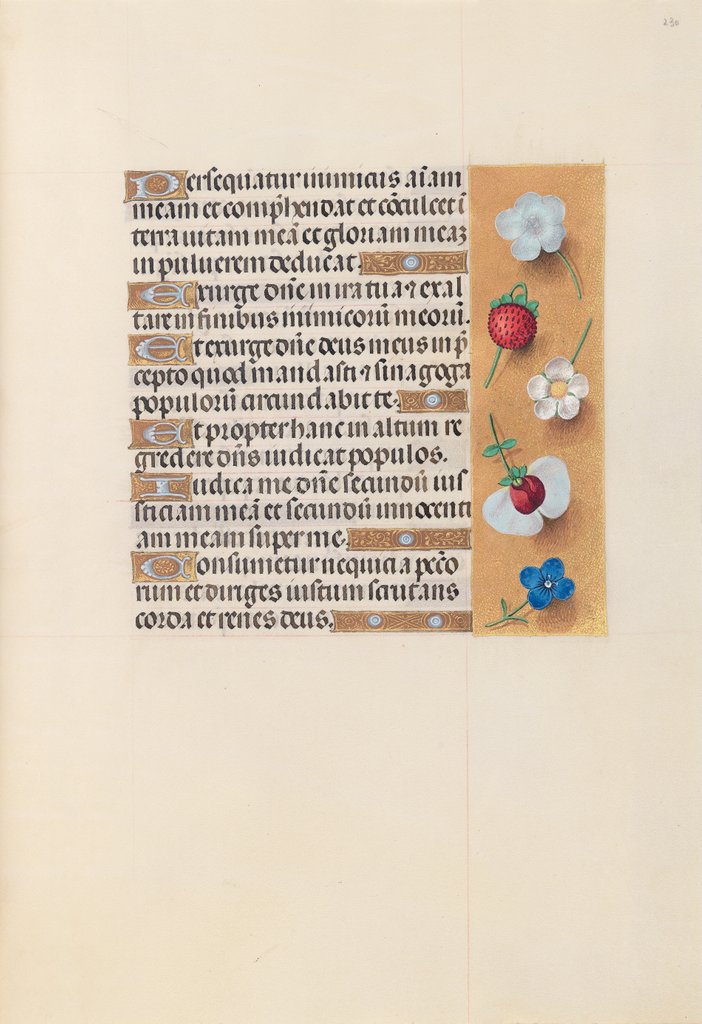 230
Persequatur inimicus aīam
meam et comp̄hendat et cōculcet ī
terra uitam meā et gloriam meaʒ
in puluerem deducat.
Exurge dn̄e in ira tua ⁊ exal
tare in finibus inimicorū meorū.
Et exurge dn̄e deus meus in p̄
cepto quod mandasti ⁊ sinagoga
populorū circundabit te.
Et propter hanc in altum re
gredere dn̄s iudicat populos.
Iudica me dn̄e secundū ius
ticiam meā et secundū innocenti
am meam super me.
Consumetur nequicia pecc̄o
rum et diriges iustum scrutans
corda et renes deus.